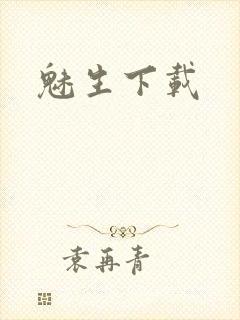 魅生下載
袁再青